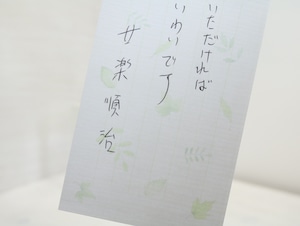 いただければ
いわいです
甘楽順治